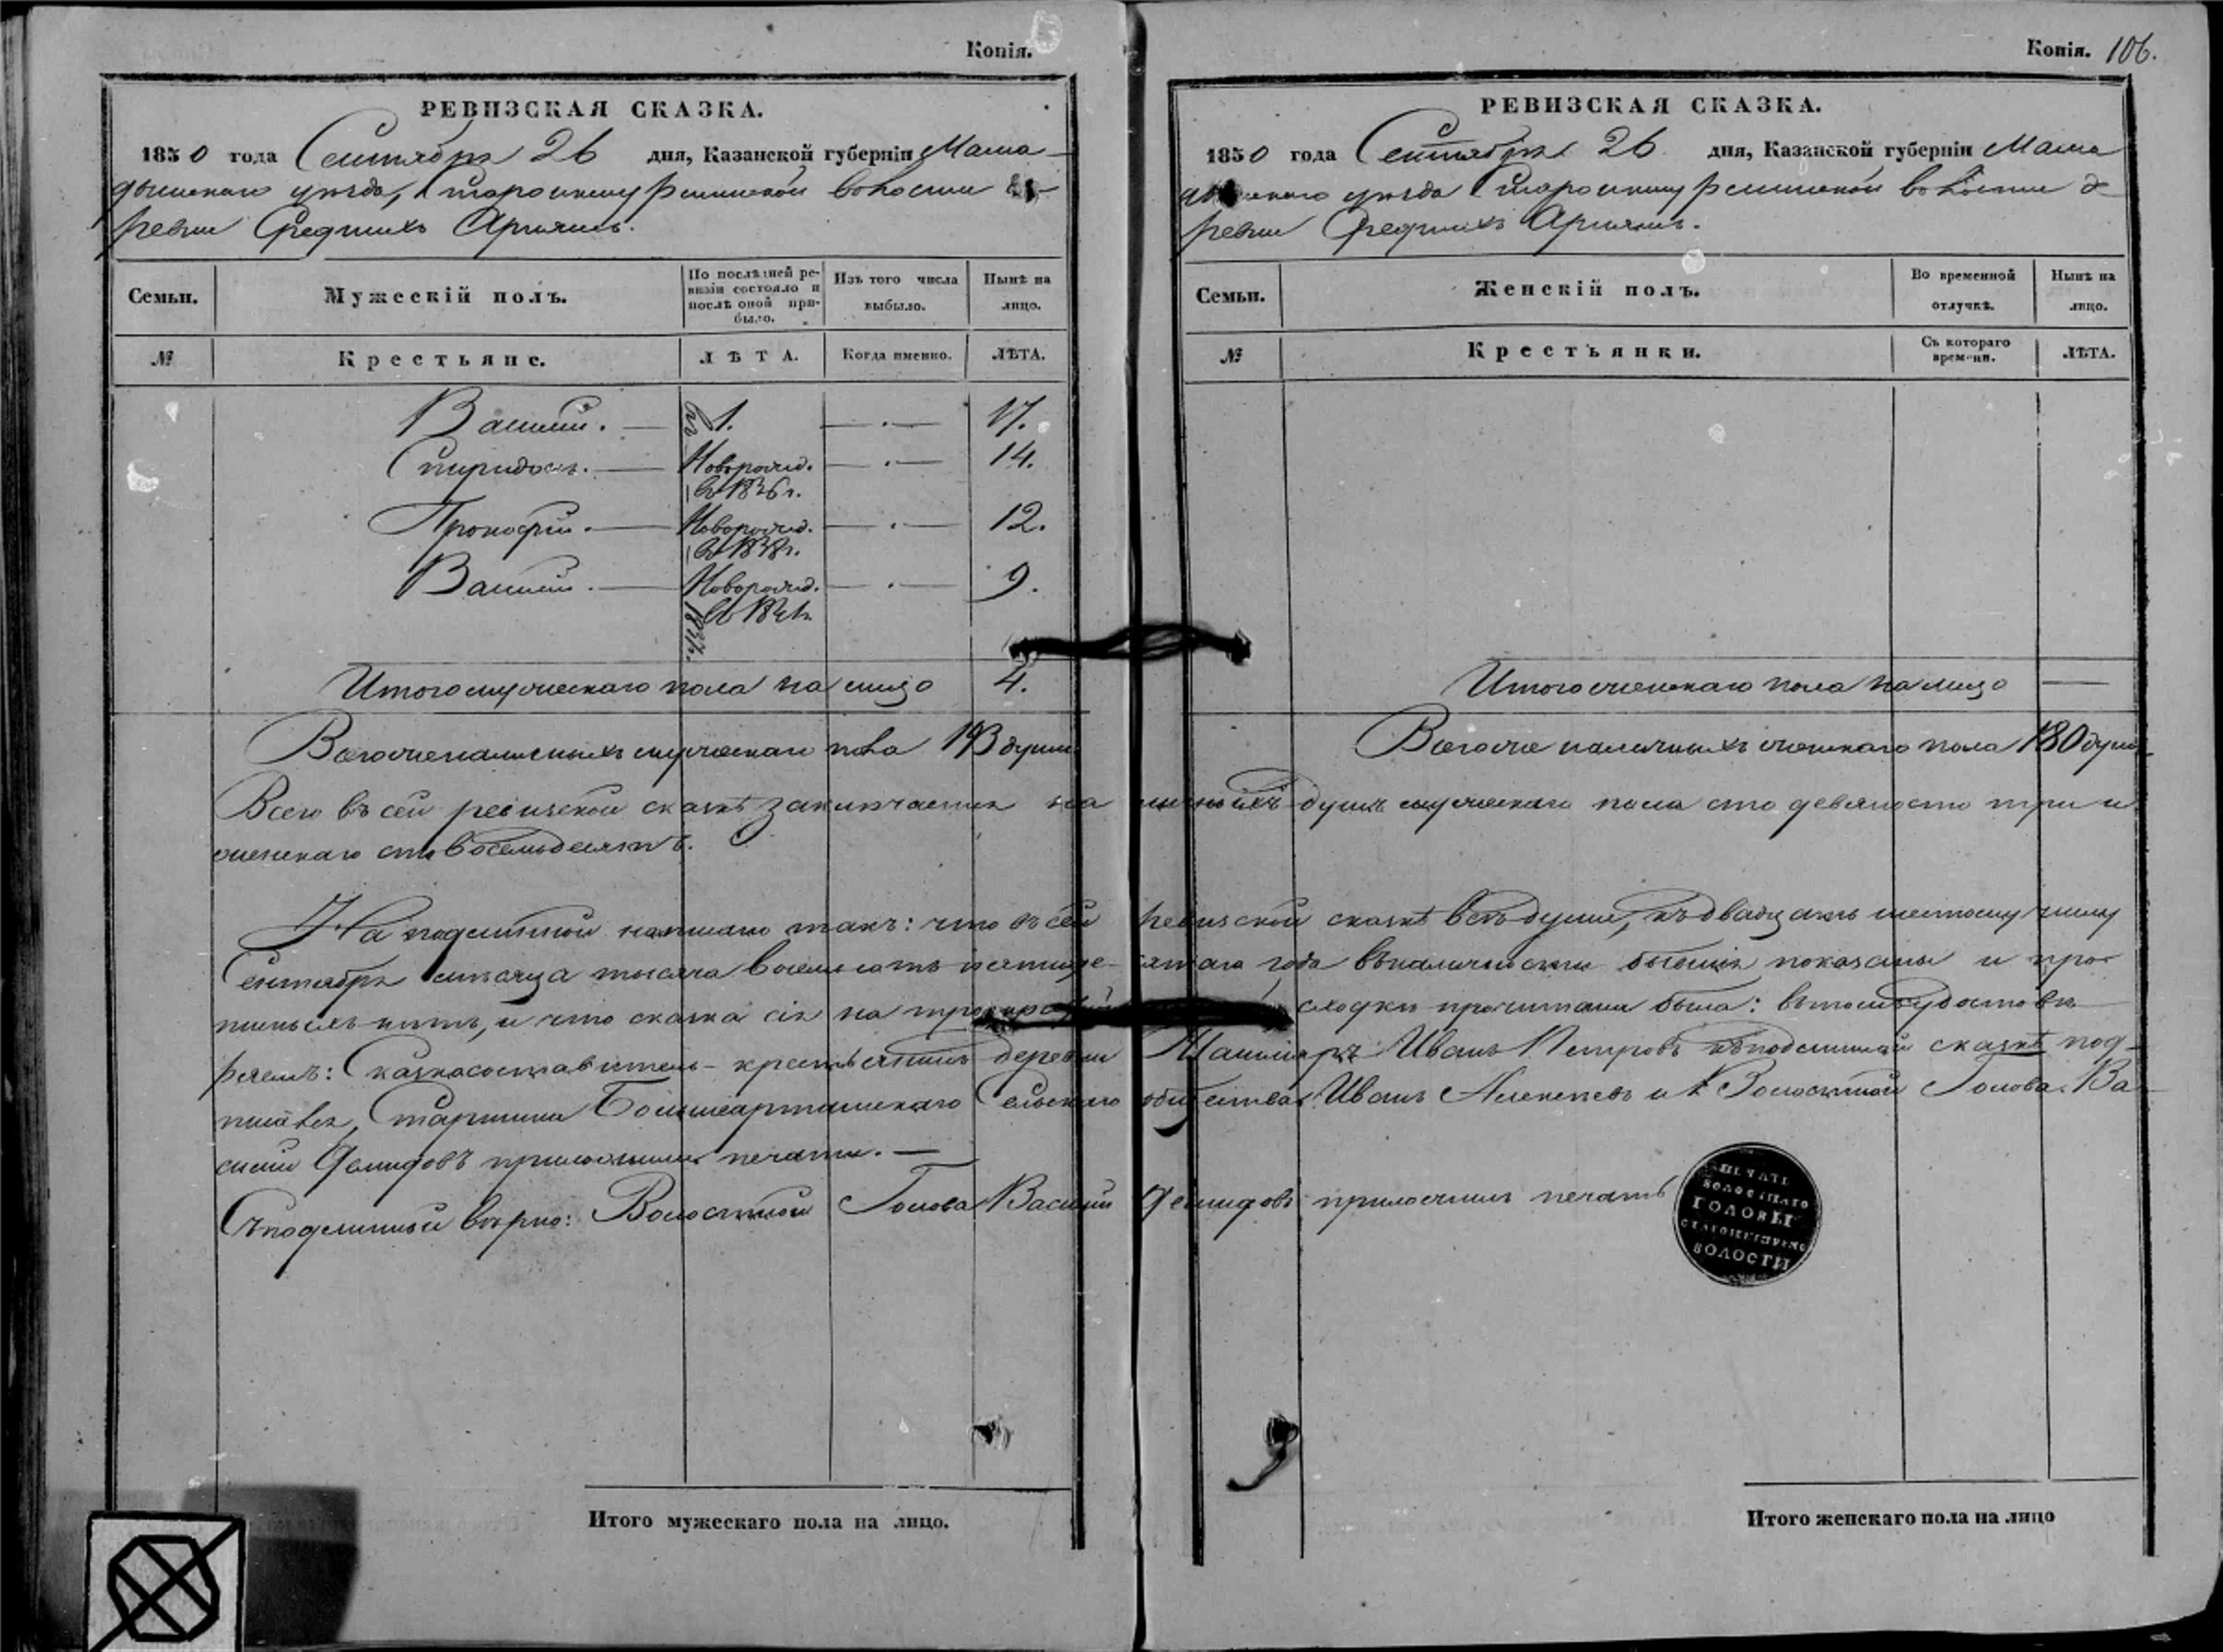 Копія.
РЕВИЗСКАЯ СКАЗКА.
1850 года Сентября 26 дня, Казанской губерніи Мама-
дышскаго уѣзда, волости де-
ревни Среднихъ
Семьи.
Мужескій полъ.
По послѣдней ре-
визіи состояло и
послѣ оной при-
было.
Изъ того числа
выбыло.
Нынѣ на
лицо.
№
Крестьяне.
ЛѢТА.
Когда именно.
ЛѢТА.
Василій. — 1. — 17.
Спиридонъ. — Новорожд. — 14.
въ 1836 г.
Прокофій. — Новорожд. — 12.
въ 1838 г.
Василій. — Новорожд. — 9.
Итого мужескаго пола на лицо 4.
Всего же наличныхъ мужеска пола 193 души
Копія. 106.
РЕВИЗСКАЯ СКАЗКА.
1850 года Сентября 26 дня, Казанской губерніи Мама
уѣзда волости де
ревни Среднихъ
Семьи.
Женскій полъ.
Во временной
отлучкѣ.
Нынѣ на
лицо.
№
Крестьянки.
Съ котораго
времени.
ЛѢТА.
Итого женскаго пола на лицо —
Всего же наличныхъ женскаго пола 180 душъ
Всего въ сей ревизской сказкѣ заключается наличныхъ душъ мужескаго пола сто девяносто три и
женскаго сто восемьдесятъ.
На подлинной написано такъ: что въ сей ревизской сказкѣ всѣ души, къ двадцать шестому числу
Сентября мѣсяца тысяча восемьсотъ пятидесятаго года въ наличности бывшія показаны и про-
пущенныхъ нѣтъ, и что сказка сія на сходкѣ прочитана была: въ томъ удостовѣ-
ряемъ: Сказкосоставитель крестьянинъ деревни Иванъ Петровъ къ подлинной сказкѣ под-
Старшина Сельскаго общества Иванъ Алексѣевъ и Волостной Голова Ва-
силій Демидовъ приложили печати. —
Съ подлинной вѣрно: Волостной Голова Василій Демидовъ приложилъ печать
ПЕЧАТЬ
ВОЛОСТНАГО
ГОЛОВЫ
ВОЛОСТИ
Итого мужескаго пола на лицо.
Итого женскаго пола на лицо